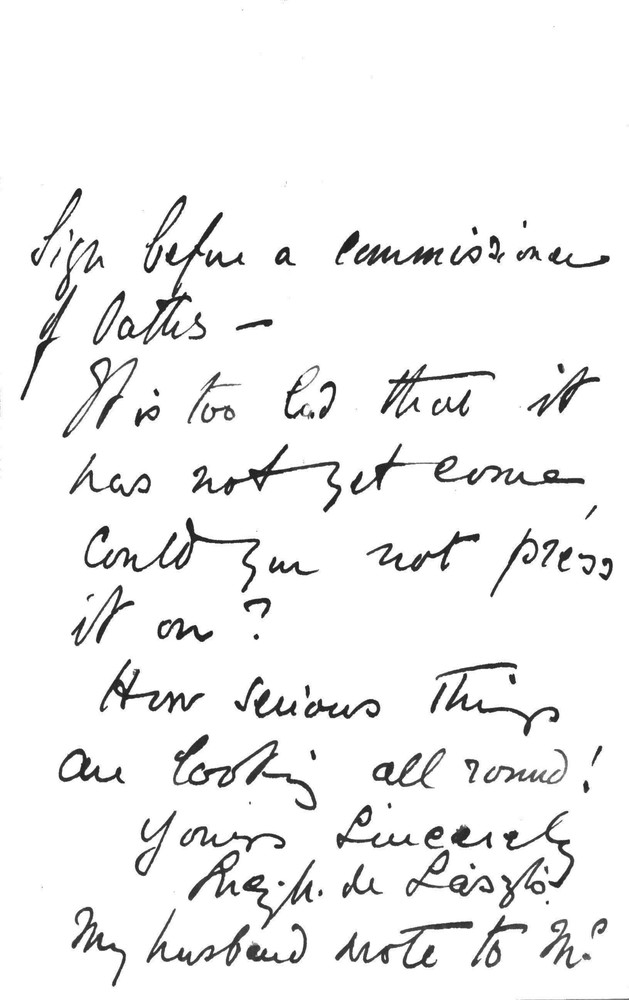 Sign before a commissioner
of Oaths –
It is too bad that it
has not yet come
Could you not press
it on?
How serious things
are looking all round!
Yours Sincerely
Lucy. M. de László.
My husband wrote to Mr